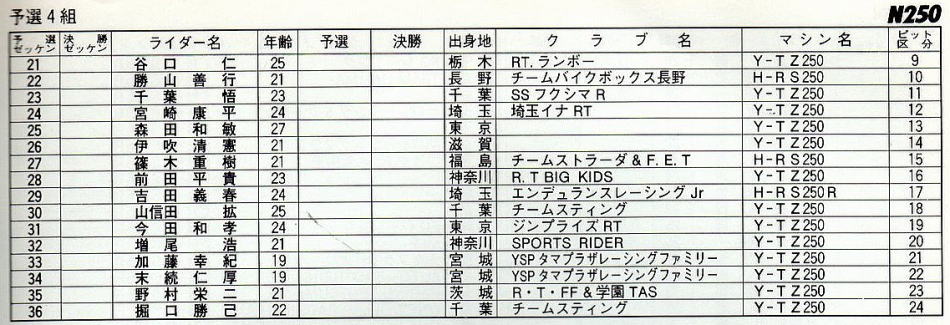 予選4組 N250
予選ゼッケン 決勝ゼッケン ライダー名 年齢 予選 決勝 出身地 クラブ名 マシン名 ピット区分
21 谷口仁 25 栃木 RT.ランボー Y-TZ250 9
22 勝山善行 21 長野 チームバイクボックス長野 H-RS250 10
23 千葉悟 23 千葉 SSフクシマR Y-TZ250 11
24 宮崎康平 24 埼玉 埼玉イナRT Y-TZ250 12
25 森田和敏 27 東京 Y-TZ250 13
26 伊吹清憲 21 滋賀 Y-TZ250 14
27 篠木重樹 21 福島 チームストラーダ&F.E.T H-RS250 15
28 前田平貴 23 神奈川 R.T BIG KIDS Y-TZ250 16
29 吉田義春 24 埼玉 エンデュランスレーシングJr H-RS250R 17
30 山信田拡 25 千葉 チームスティング Y-TZ250 18
31 今田和孝 24 東京 ジンプライズRT Y-TZ250 19
32 増尾浩 21 神奈川 SPORTS RIDER Y-TZ250 20
33 加藤幸紀 19 宮城 YSPタマプラザレーシングファミリー Y-TZ250 21
34 末続仁厚 19 宮城 YSPタマプラザレーシングファミリー Y-TZ250 22
35 野村栄二 21 茨城 R・T・FF&学園TAS Y-TZ250 23
36 掘口勝己 22 千葉 チームスティング Y-TZ250 24